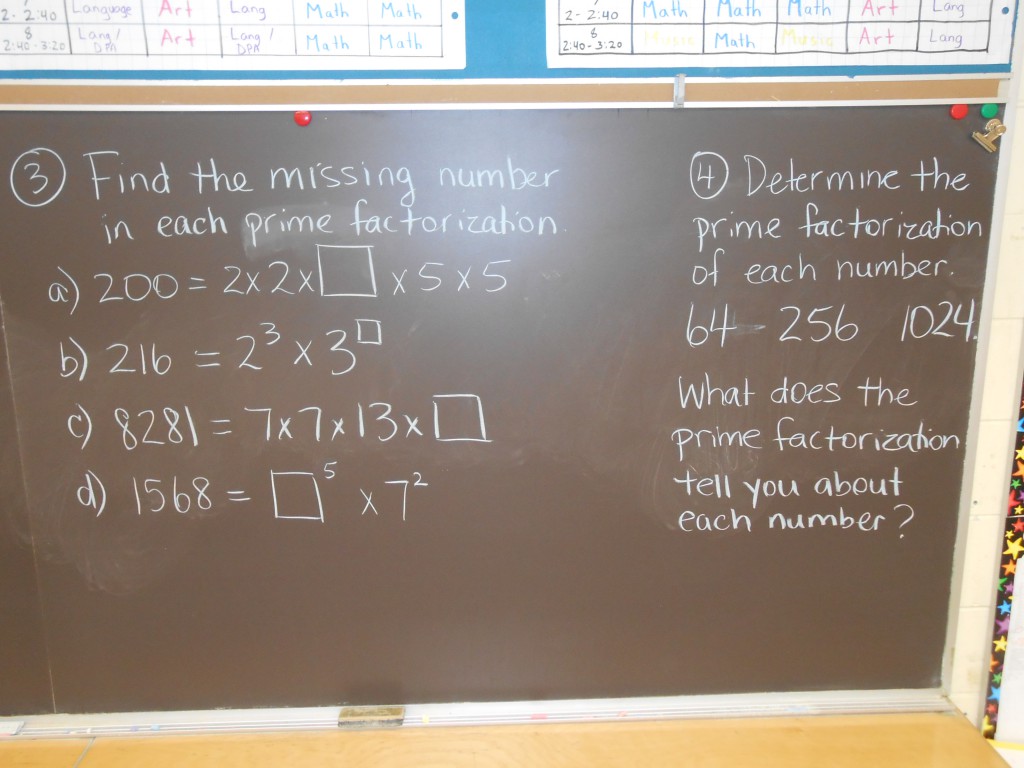 2 - 2:40 Language Art Lang Math Math
8 2:40 - 3:20 Lang / DPA Art Lang / DPA Math Math
2 - 2:40 Math Math Math Art Lang
8 2:40 - 3:20 Music Math Music Art Lang
3 Find the missing number
in each prime factorization.
a) 200 = 2 x 2 x □ x 5 x 5
b) 216 = 2³ x 3□
c) 8281 = 7 x 7 x 13 x □
d) 1568 = □⁵ x 7²
4 Determine the
prime factorization
of each number.
64 256 1024.
What does the
prime factorization
tell you about
each number?